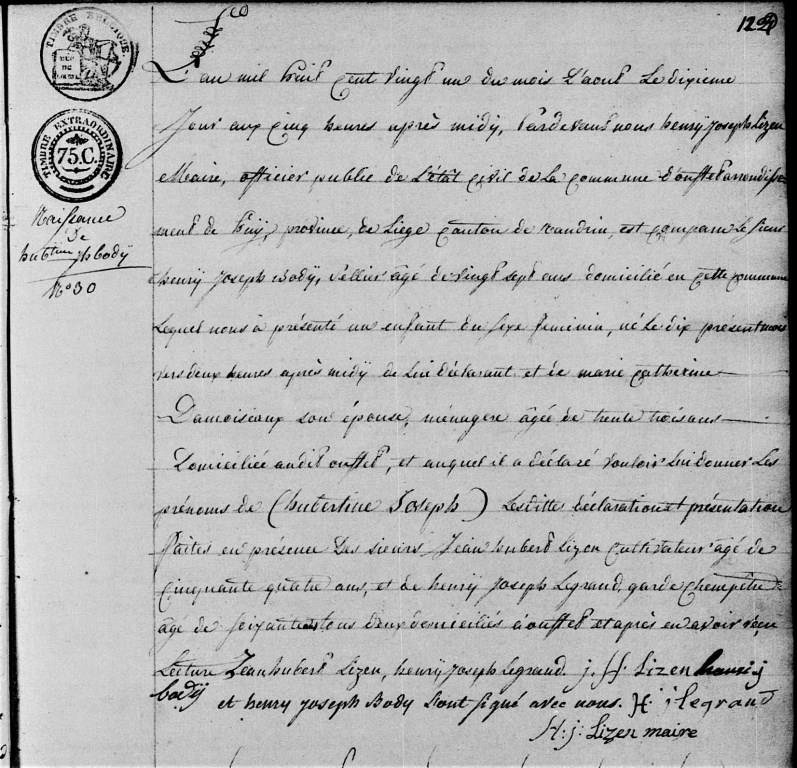 TIMBRE BELGIQUE
TIMBRE EXTRAORDINAIRE
75.C.
Naissance
de
hubtine jph body
N° 30
L'an mil huit cent vingt un du mois d'aout Le dixieme
Jour aux cinq heures après midÿ, Pardevant nous henrÿ Joseph Lizen
Maire, officier public de L'état civil de La commune d'ouffet arrondisse
ment de huÿ, province, de Liege canton de nandrin, est comparu Le sieur
henrÿ Joseph Bodÿ, Sellier âgé de vingt sept ans domicilié en cette commune
Lequel nous à présenté un enfant du sexe feminin, né Le dix présent mois
vers deux heures après midÿ de Lui déclarant et de marie catherine
Damoiseaux son épouse, ménagere âgée de trente trois ans
Domiciliée audit ouffet, et auquel il a déclaré vouloir Lui donner Les
prénoms de (hubertine Joseph) Lesditte déclaration et présentation
faites en présence Des sieurs Jean hubert Lizen cultivateur âgé de
cinquante quatre ans, et de henrÿ Joseph Legrand, garde champêtre
âgé de soixante tous deux domiciliés à ouffet et après en avoir
Lecture Jean hubert Lizen, henrÿ Joseph Legrand. j. H. Lizen henri j
bodÿ et henrÿ Joseph Body Sont signé avec nous. H. j legrand
H: j: Lizen maire